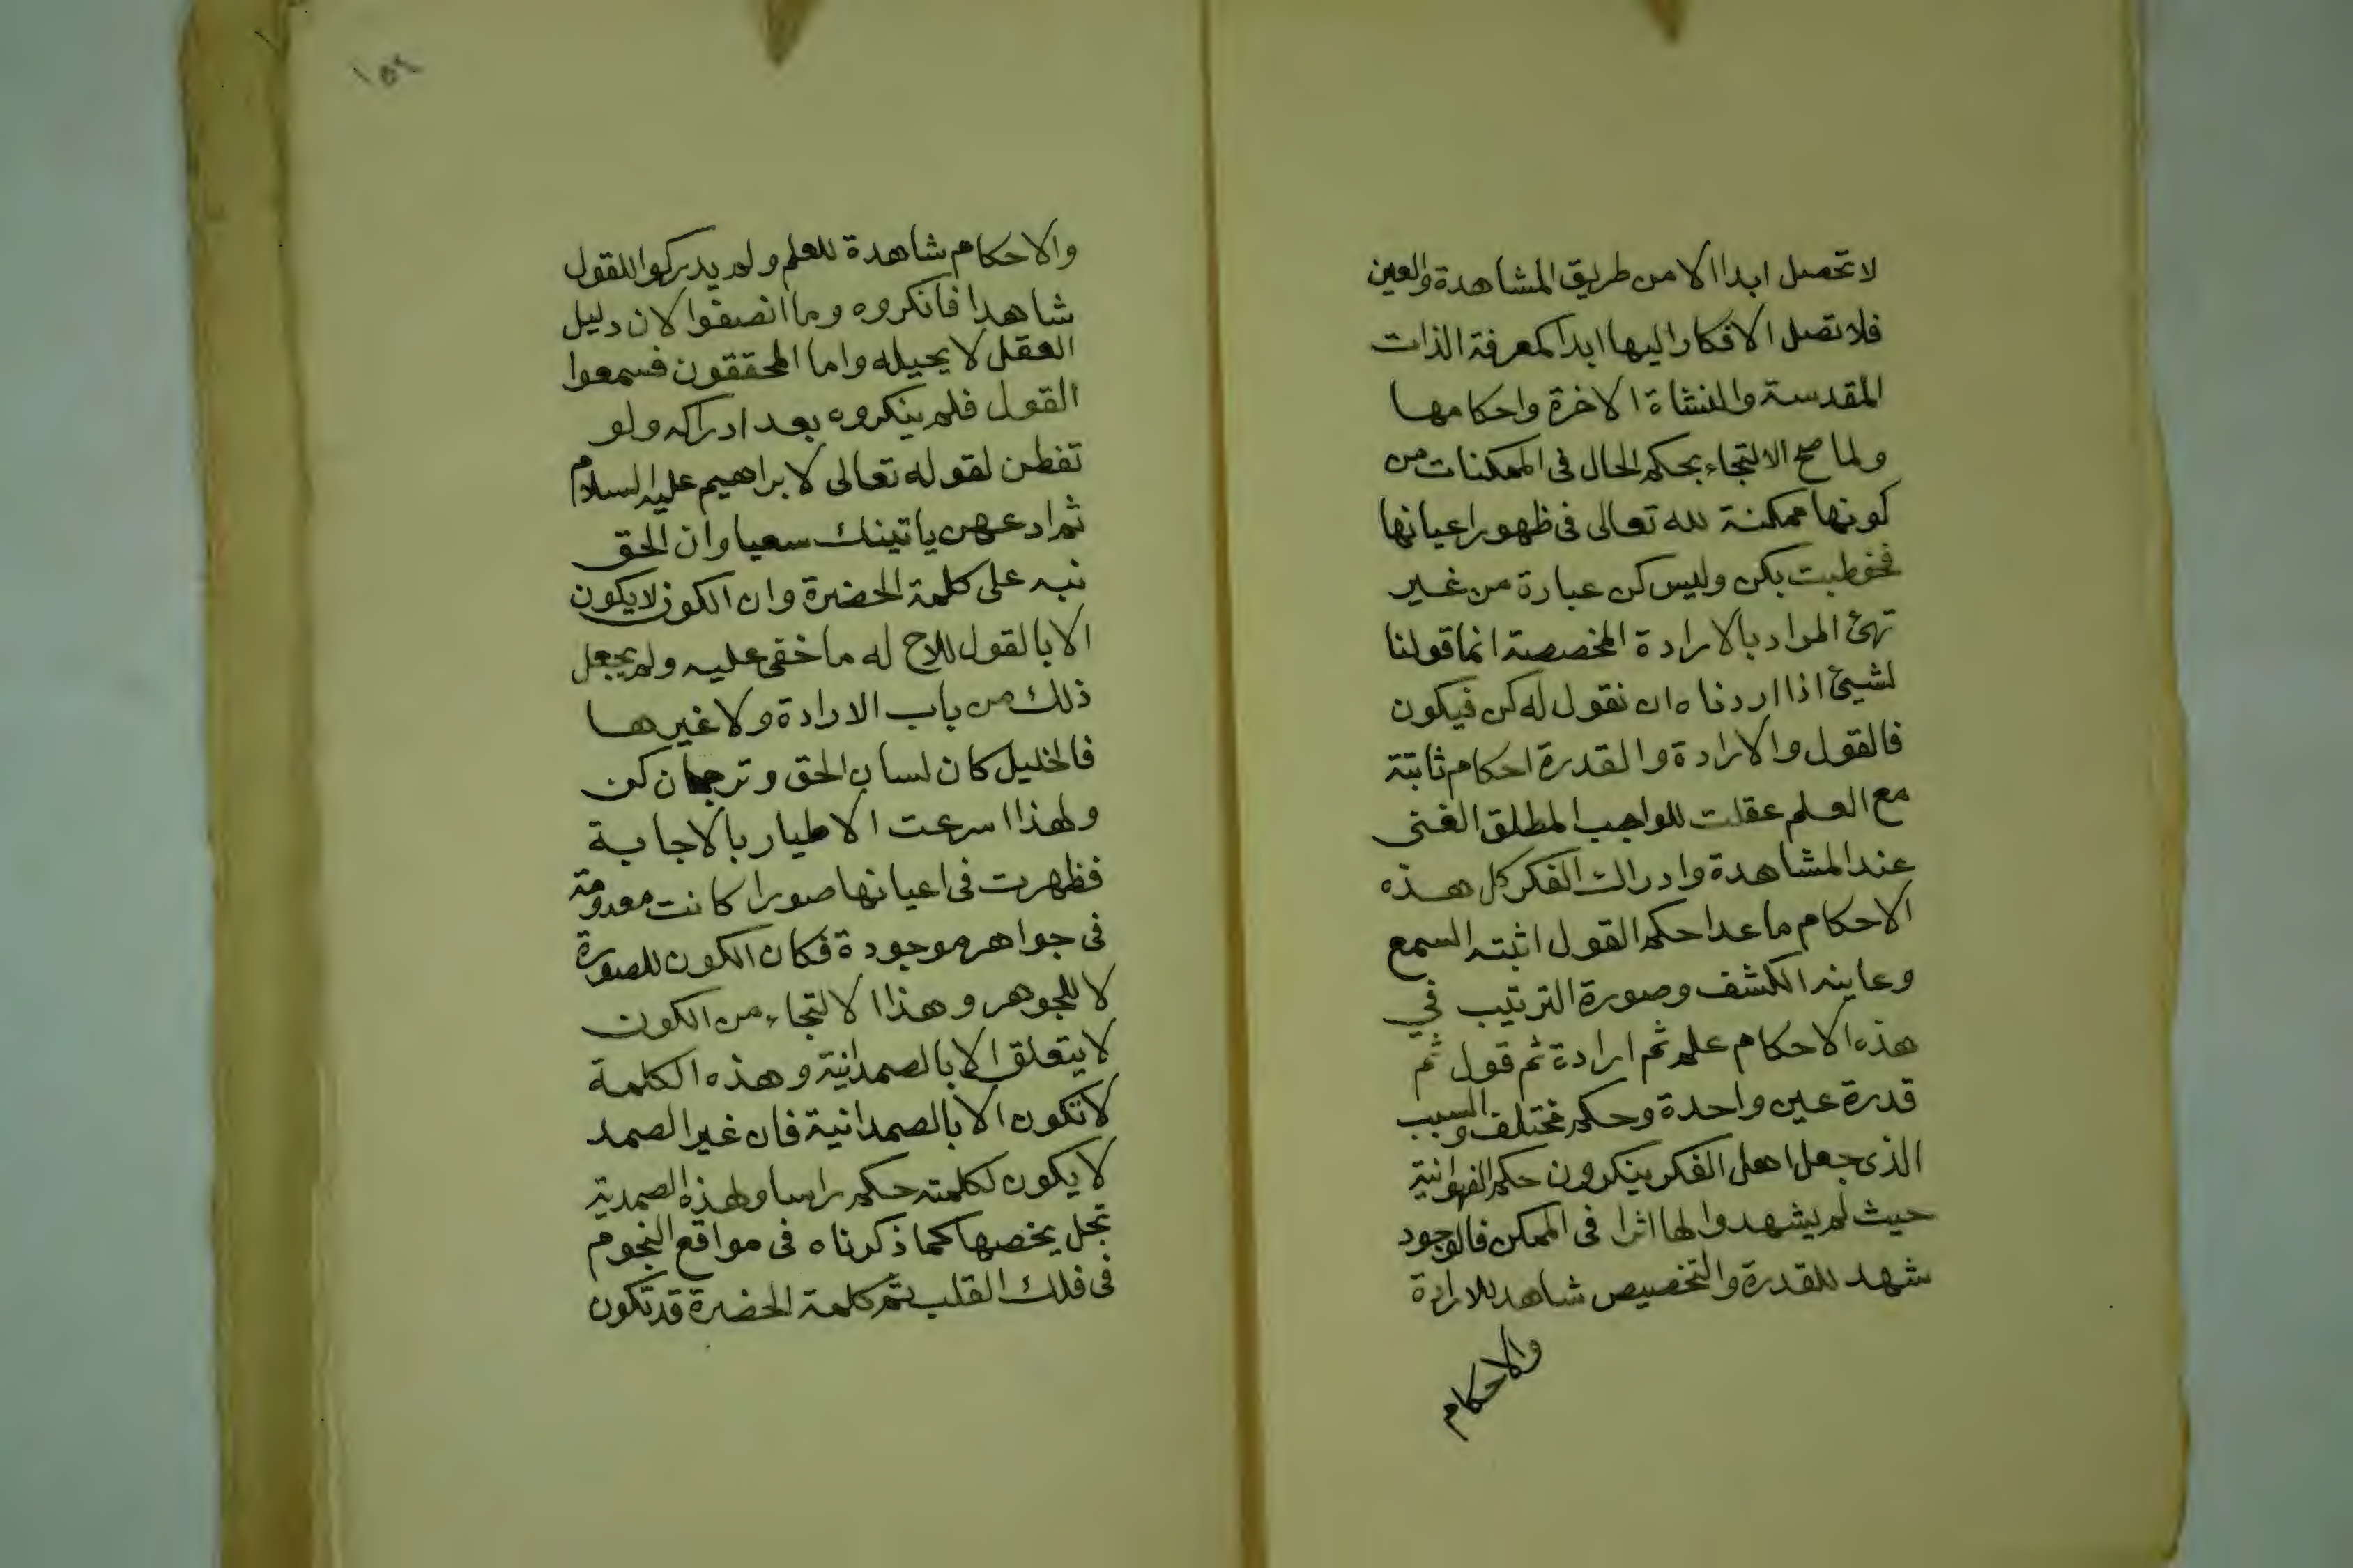 لا تحصل ابدا الا من طريق المشاهدة والعين
فلا تصل الافكار اليها ابدا كمعرفة الذات
المقدسة والنشاة الاخرة واحكامها
ولما صح الالتجاء بحكم الحال فى الممكنات من
كونها ممكنة لله تعالى فى ظهور اعيانها
فخوطبت بكن وليس كن عبارة من غير
تهئ المراد بالارادة المخصصة انما قولنا
لشيئ اذا اردناه ان نقول له كن فيكون
فالقول والارادة والقدرة احكام ثابتة
مع العلم عقلت للواجب المطلق الغنى
عند المشاهدة وادراك الفكر كل هذه
الاحكام ما عدا حكم القول اثبته السمع
وعاينه الكشف وصورة الترتيب في
هذه الاحكام علم ثم ارادة ثم قول ثم
قدرة عين واحدة وحكم مختلف والسبب
الذى جعل اهل الفكر ينكرون حكم الفهوانية
حيث لم يشهدوا لها اثرا فى الممكن فالوجود
شهد للقدرة والتخصيص شاهد للارادة
والاحكام
١٥٢
والاحكام شاهدة للعلم ولم يدركوا للقول
شاهدا فانكروه وما انصفوا لان دليل
العقل لا يحيله واما المحققون فسمعوا
القول فلم ينكروه بعد ادراكه ولو
تفطن لقوله تعالى لابراهيم عليه السلام
ثم ادعهن ياتينك سعيا وان الحق
نبه على كلمة الحضرة وان الكون لا يكون
الا بالقول للاح له ما خفى عليه ولم يجعل
ذلك من باب الارادة ولا غيرها
فالخليل كان لسان الحق وترجمان كن
ولهذا اسرعت الاطيار بالاجابة
فظهرت فى اعيانها صورا كانت معدومة
فى جواهر موجودة فكان الكون للصورة
لا للجوهر وهذا الالتجاء من الكون
لا يتعلق الا بالصمدانية وهذه الكلمة
لا تكون الا بالصمدانية فان غير الصمد
لا يكون لكلمته حكم راسا ولهذه الصمدية
تجل يخصها كما ذكرناه فى مواقع النجوم
فى فلك القلب ثم كلمة الحضرة قد تكون